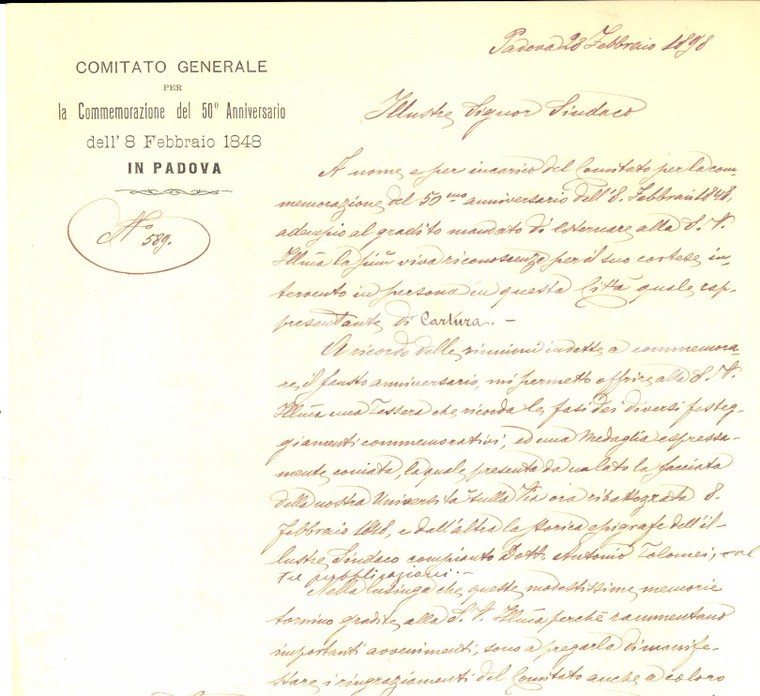 COMITATO GENERALE
PER
la Commemorazione del 50º Anniversario
dell' 8 Febbraio 1848
IN PADOVA
Nº 589.
Padova 28 Febbraio 1898
Illustre Signor Sindaco
A nome e per incarico del Comitato per la com-
memorazione del 50mo anniversario dell' 8. Febbrai 1848,
adempio al gradito mandato di esternare alla S. V.
Illma la più viva riconoscenza per il suo cortese in-
tervento in persona in questa Città quale rap-
presentante di Cartura. –
A ricordo delle riunioni indette a commemora-
re il fausto anniversario, mi permetto offrire alla S. V.
Illma una Tessera che ricorda le fasi dei diversi festeg-
giamenti commemorativi, ed una Medaglia espressa-
mente coniata, la quale presenta da un lato la facciata
della nostra Università sulla Via ora ribattezzata 8.
Febbraio 1848, e dall'altra la storica epigrafe dell'il-
lustre Sindaco compianto Dott. Antonio Tolomei, ed al
tre pubblicazioni –
Nella lusinga che queste modestissime memorie
tornino gradite alla S. V. Illma perchè rammentano
importanti avvenimenti, sono a pregarla di manife-
stare i ringraziamenti del Comitato anche a coloro